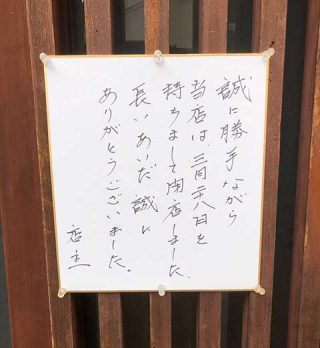 誠に勝手ながら
当店は、三月二八日を
持ちまして閉店しました。
長いあいだ誠に
ありがとうございました。
店主